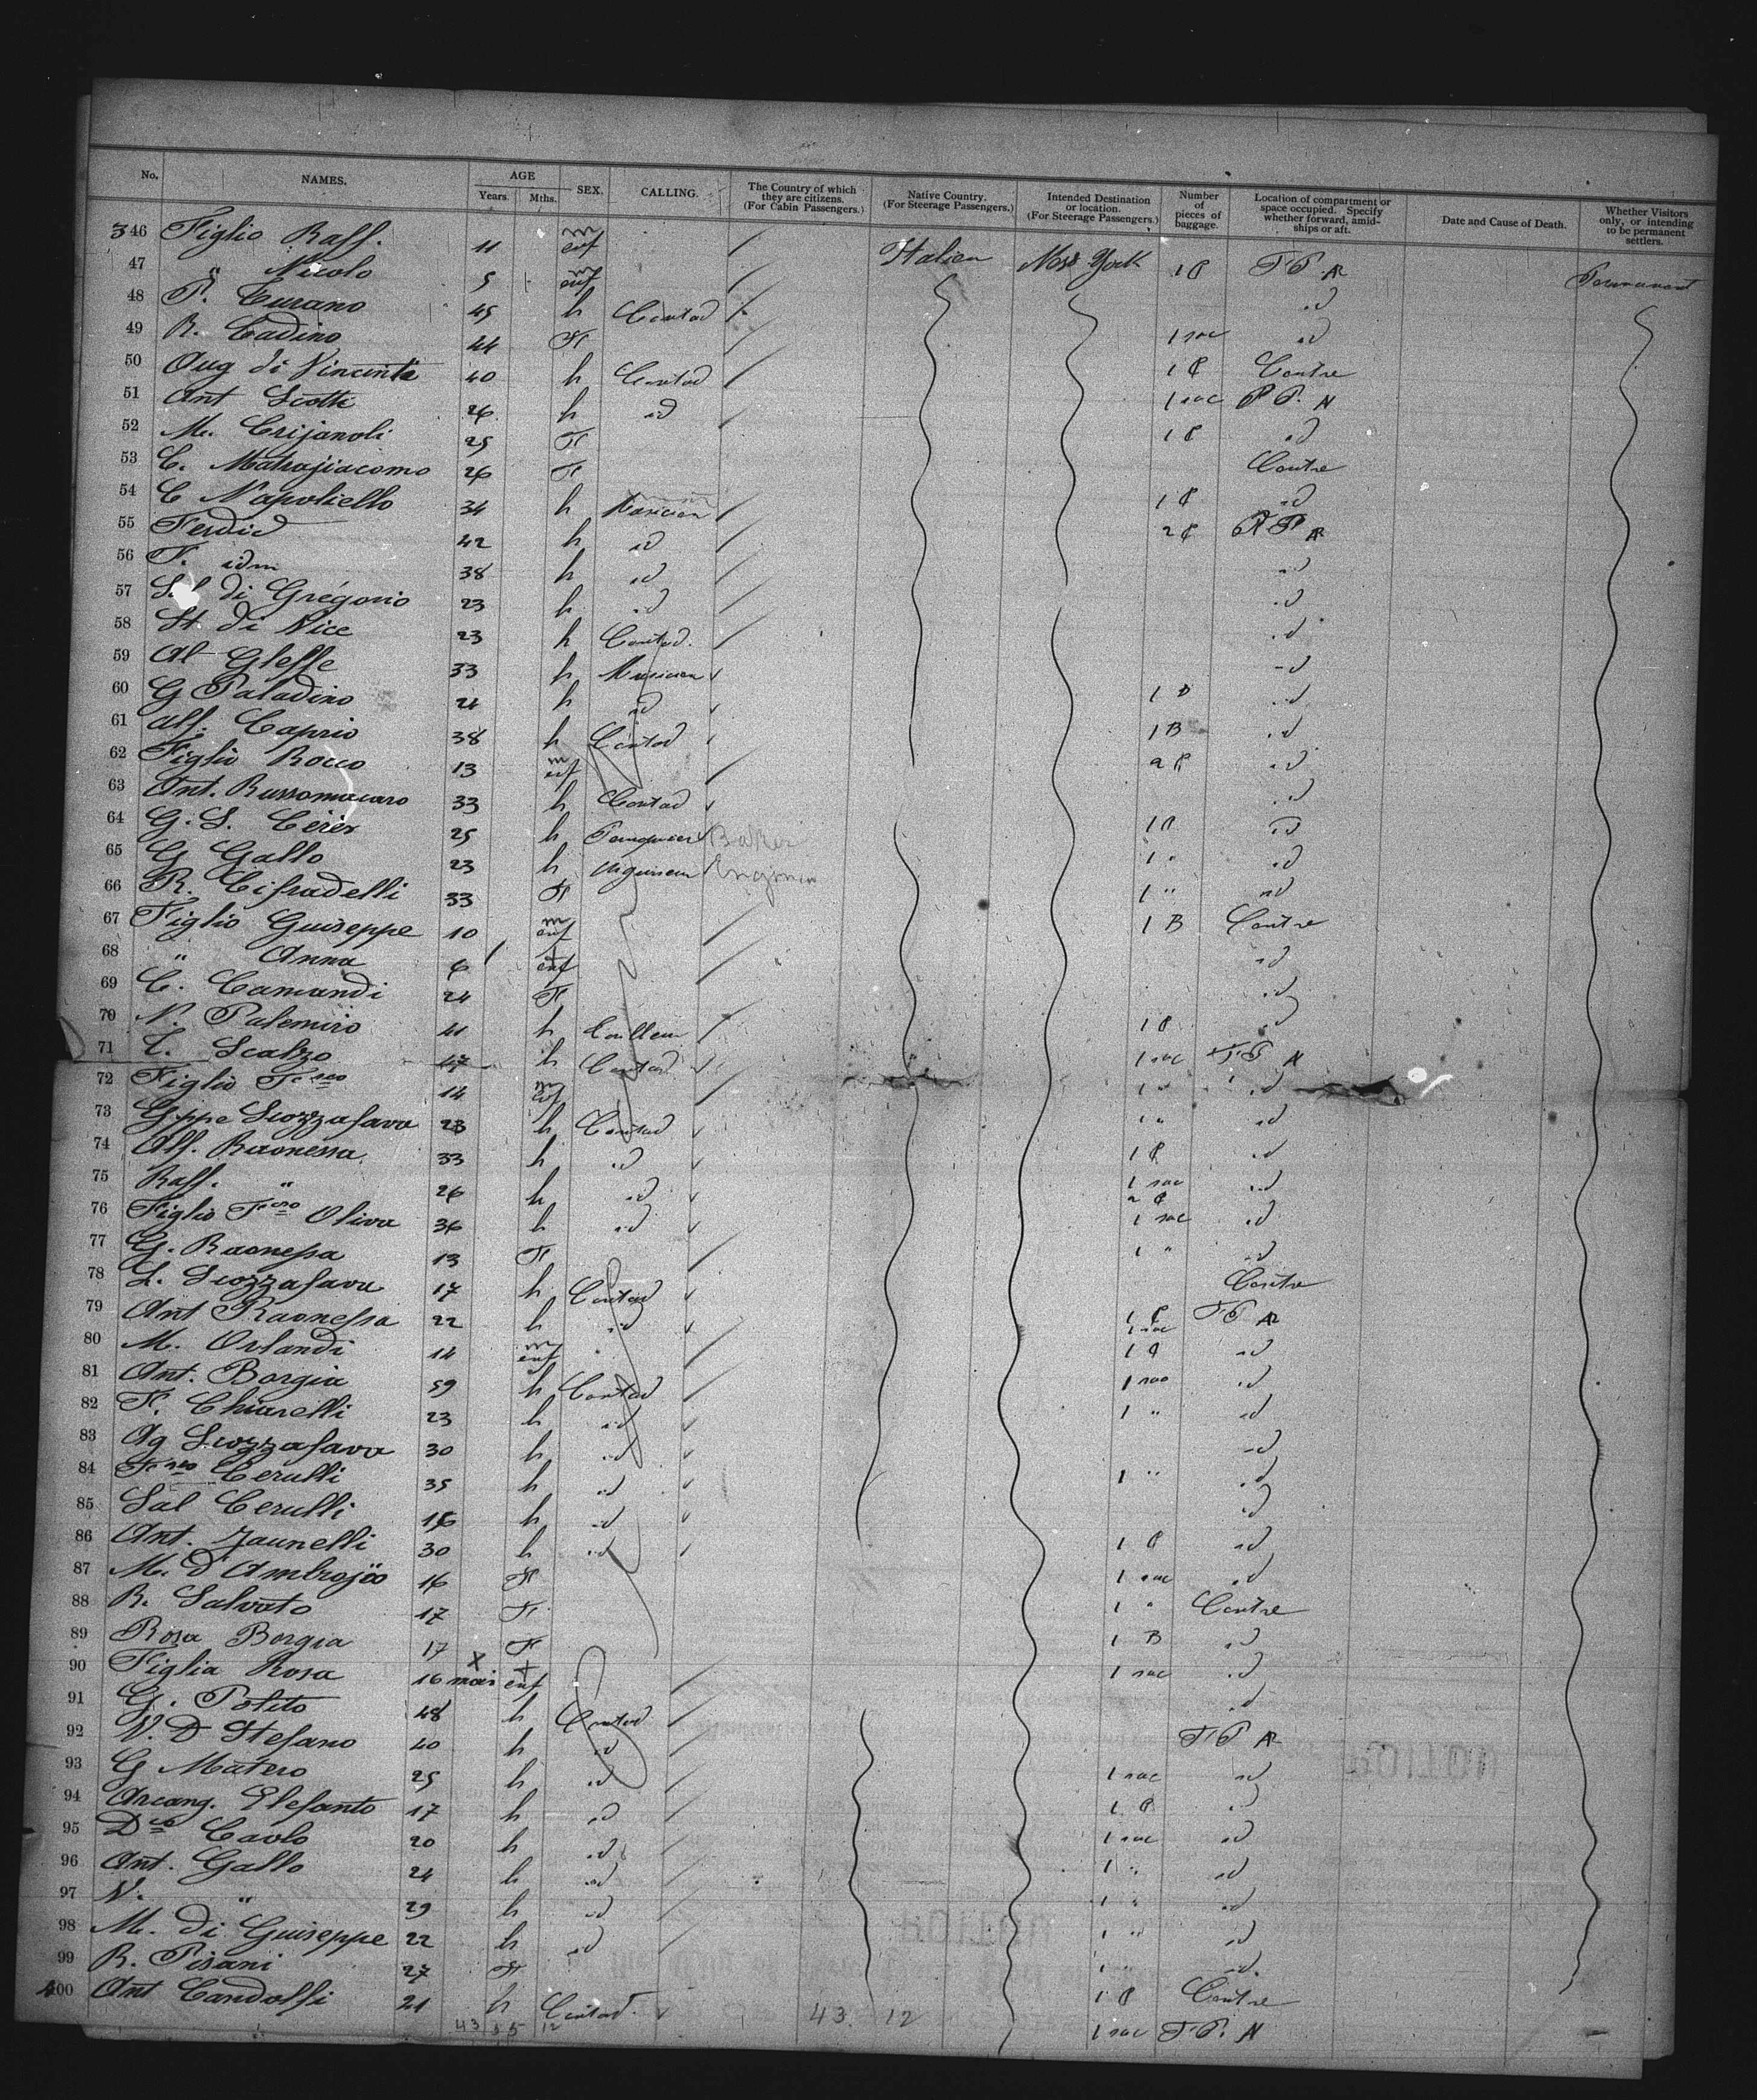 No. NAMES. AGE Years. Mths. SEX. CALLING. The Country of which they are citizens. (For Cabin Passengers.) Native Country. (For Steerage Passengers.) Intended Destination or location. (For Steerage Passengers.) Number of pieces of baggage. Location of compartment or space occupied. Specify whether forward, amidships or aft. Date and Cause of Death. Whether Visitors only, or intending to be permanent settlers.
346 Figlio Raff. 11 m enf Italien New York 1 P FP AR Permanent
47 " Nicolo 5 m enf id
48 P. Turano 45 h Contad 1 sac id
49 R. Cadino 44 F 1 P Centre
50 Aug di Vincenta 40 h Contad 1 sac FP. N
51 Ant Scotti 26 h id 1 P id
52 M. Crijanoli 25 F Centre
53 C. Matrojiacomo 26 F 1 P id
54 C Napoliello 34 h Musicien 2 P FP AR
55 Ferdid 42 h id id
56 F. idm 38 h id id
57 di Grégorio 23 h id id
58 St. di Nice 23 h Contad. id
59 Al Gleffe 33 h Musicien 1 P id
60 G Paladino 24 h id 1 B id
61 Alf. Caprio 38 h Contad 2 P id
62 Figlio Rocco 13 m enf id
63 Ant. Russomacaro 33 h Contad 1 P id
64 G. S. Cirer 25 h Baker 1 " id
65 G Gallo 23 h Engineer 1 " id
66 R. Cifradelli 33 F 1 B Centre
67 Figlio Guiseppe 10 m enf id
68 " Anna 6 f enf id
69 C. Camandi 24 F 1 P id
70 N. Palemiro 41 h 1 sac FP N
71 C. Scalzo 47 h Contad 1 " id
72 Figlio Fcesco 14 m enf 1 " id
73 Gppe Scozzafava 23 h Contad 1 P id
74 Alf. Raonessa 33 h id 1 sac id
75 Raff. " 26 h id 2 P 1 sac id
76 Figlio Fcesco Oliva 36 h id 1 " id
77 G. Raonessa 13 F Centre
78 L. Scozzafava 17 h Contad 1 P 1 sac FP AR
79 Ant Raonessa 22 h id 1 P id
80 M. Orlandi 14 m enf 1 sac id
81 Ant. Borgia 59 h Contad 1 " id
82 F. Chiarelli 23 h id id
83 Ag Scozzafava 30 h id 1 " id
84 Fcesco Cerulli 35 h id id
85 Sal Cerulli 16 h id 1 P id
86 Ant. Jaunelli 30 h id 1 sac id
87 M. D'Ambrojio 16 F 1 " Centre
88 R. Salvato 17 F 1 B id
89 Rosa Borgia 17 F 1 sac id
90 Figlia Rosa 16 mois f enf id
91 G. Polito 48 h Contad FP AR
92 V. D Stefano 40 h id 1 sac id
93 G Matero 25 h id 1 P id
94 Arcang. Elefanto 17 h id 1 sac id
95 Dco Carlo 20 h id 1 " id
96 Ant. Gallo 24 h id 1 " id
97 V. " 29 h id 1 " id
98 M. di Guiseppe 22 h id 1 " id
99 R. Pisani 27 F 1 P Centre
400 Ant Candolfi 21 h Contad. 1 sac FP. N
43 12